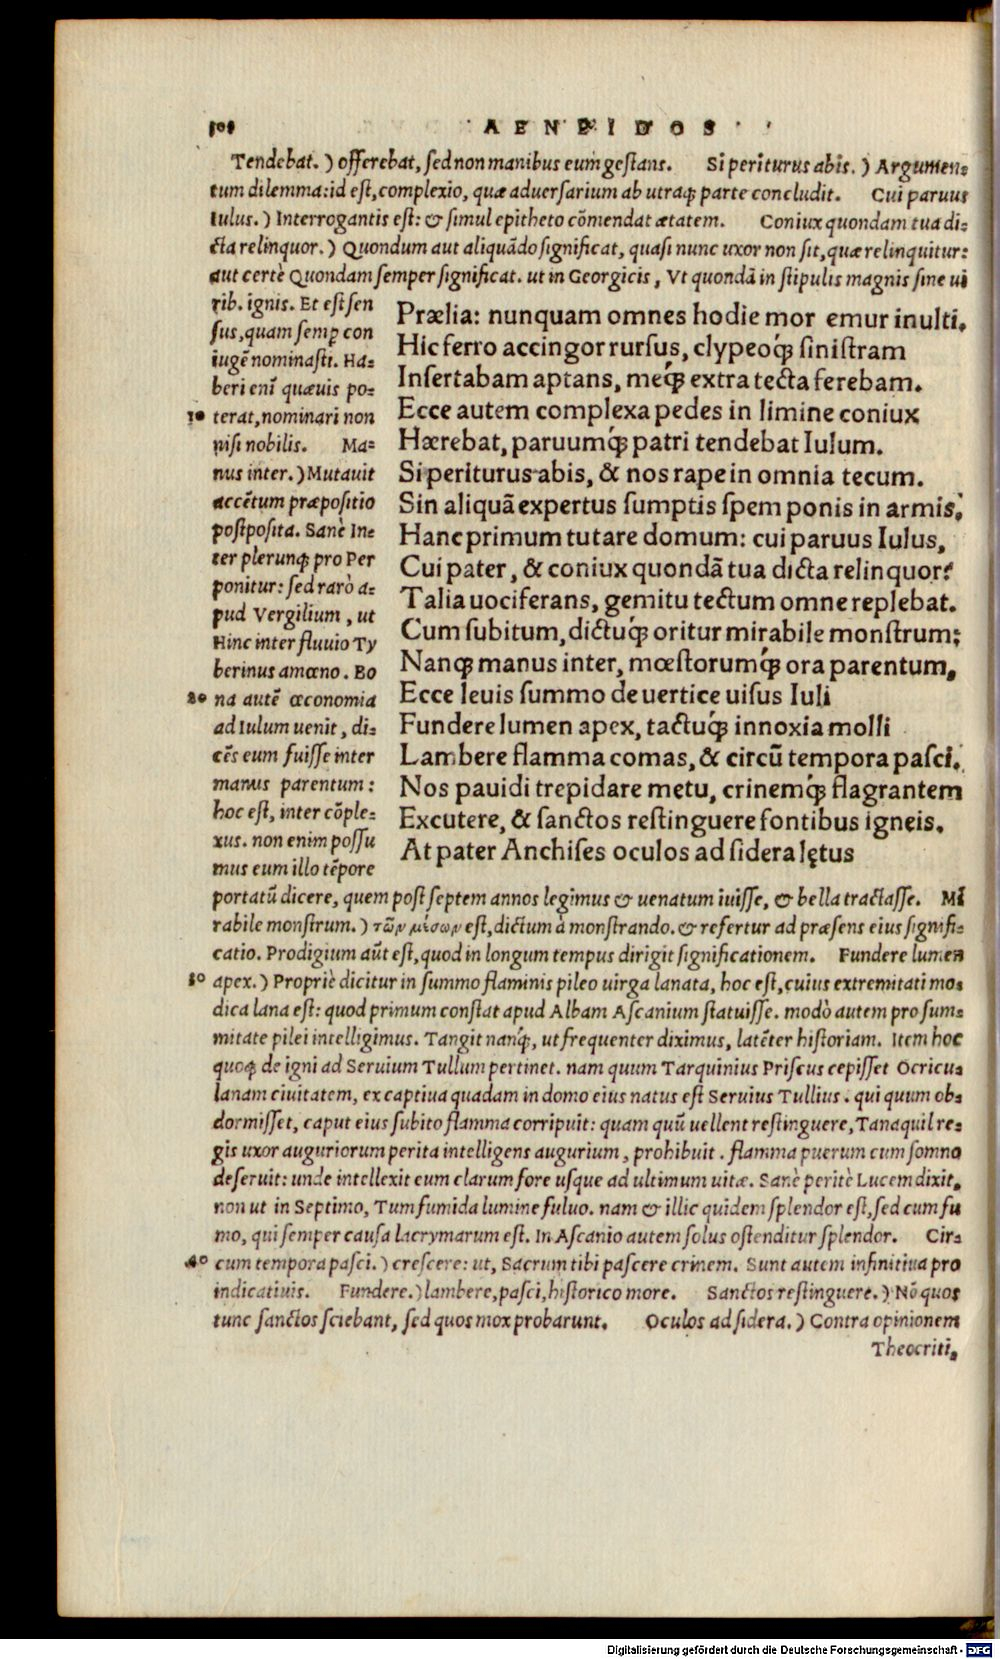 AENEIDOS
Tendebat.) offerebat, sed non manibus eum gestans. Si periturus abis.) Argumen=
tum dilemma: id est, complexio, quæ aduersarium ab utraq; parte concludit. Cui paruus
Iulus.) Interrogantis est: & simul epitheto cõmendat ætatem. Coniux quondam tua di=
cta relinquor.) Quondum aut aliquãdo significat, quasi nunc uxor non sit, quæ relinquitur:
aut certè Quondam semper significat. ut in Georgicis, Vt quondã in stipulis magnis sine ui
rib. ignis. Et est sen
sus, quam semp con
iugẽ nominasti. Ha=
beri enĩ quæuis po=
10 terat, nominari non
nisi nobilis. Ma=
nus inter.) Mutauit
accẽtum præpositio
postposita. Sanè In=
ter plerunq; pro Per
ponitur: sed rarò a=
pud Vergilium, ut
Hinc inter fluuio Ty
berinus amœno. Bo
20 na autẽ œconomia
ad Iulum uenit, di=
cẽs eum fuisse inter
manus parentum:
hoc est, inter cõple=
xus. non enim possu
mus eum illo tẽpore
Prælia: nunquam omnes hodie mor emur inulti.
Hic ferro accingor rursus, clypeoq́; sinistram
Insertabam aptans, meq́; extra tecta ferebam.
Ecce autem complexa pedes in limine coniux
Hærebat, paruumq́; patri tendebat Iulum.
Si periturus abis, & nos rape in omnia tecum.
Sin aliquã expertus sumptis spem ponis in armis,
Hanc primum tutare domum: cui paruus Iulus,
Cui pater, & coniux quondã tua dicta relinquor?
Talia uociferans, gemitu tectum omne replebat.
Cum subitum, dictuq́; oritur mirabile monstrum:
Nanq; manus inter, mœstorumq́; ora parentum,
Ecce leuis summo de uertice uisus Iuli
Fundere lumen apex, tactuq́; innoxia molli
Lambere flamma comas, & circũ tempora pasci.
Nos pauidi trepidare metu, crinemq́; flagrantem
Excutere, & sanctos restinguere fontibus igneis.
At pater Anchises oculos ad sidera lętus
portatũ dicere, quem post septem annos legimus & uenatum iuisse, & bella tractasse. Mi
rabile monstrum.) τῶν μέσων est, dictum à monstrando. & refertur ad præsens eius signifi=
catio. Prodigium aũt est, quod in longum tempus dirigit significationem. Fundere lumen
30 apex.) Propriè dicitur in summo flaminis pileo uirga lanata, hoc est, cuius extremitati mo=
dica lana est: quod primum constat apud Albam Ascanium statuisse. modò autem pro sum=
mitate pilei intelligimus. Tangit nanq́;, ut frequenter diximus, latẽter historiam. Item hoc
quoq; de igni ad Seruium Tullum pertinet. nam quum Tarquinius Priscus cepisset Ocricu=
lanam ciuitatem, ex captiua quadam in domo eius natus est Seruius Tullius. qui quum ob=
dormisset, caput eius subito flamma corripuit: quam quũ uellent restinguere, Tanaquil re=
gis uxor auguriorum perita intelligens augurium, prohibuit. flamma puerum cum somno
deseruit: unde intellexit eum clarum fore usque ad ultimum uitæ. Sanè peritè Lucem dixit,
non ut in Septimo, Tum fumida lumine fuluo. nam & illic quidem splendor est, sed cum fu
mo, qui semper causa lacrymarum est. In Ascanio autem solus ostenditur splendor. Cir=
40 cum tempora pasci.) crescere: ut, Sacrum tibi pascere crinem. Sunt autem infinitiua pro
indicatiuis. Fundere.) lambere, pasci, historico more. Sanctos restinguere.) Nõ quos
tunc sanctos sciebant, sed quos mox probarunt. Oculos ad sidera.) Contra opinionem
Theocriti,
Digitalisierung gefördert durch die Deutsche Forschungsgemeinschaft - DFG